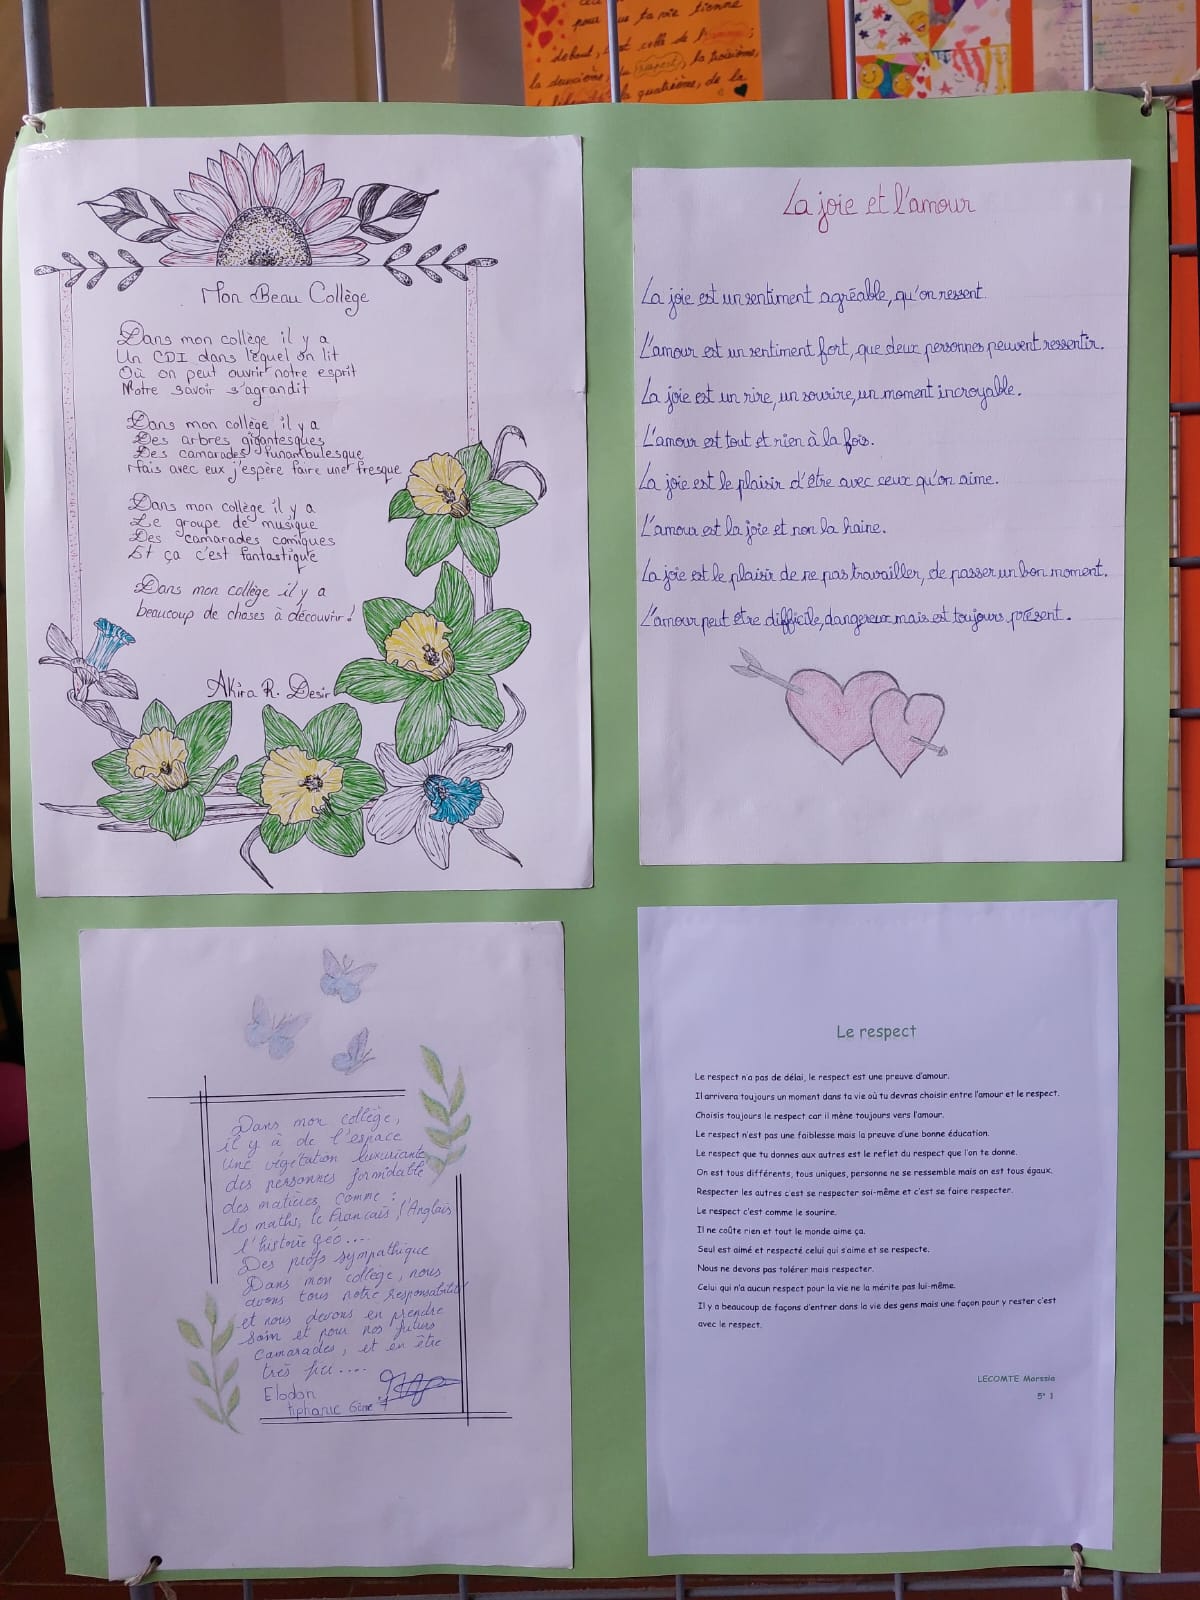 pour que ta vie tienne
debout,
respect, la troisième,
la deuxième, du
la quatrième, de la
Mon Beau Collège
Dans mon collège il y a
Un CDI dans lequel on lit
Où on peut ouvrir notre esprit
Notre savoir s'agrandit
Dans mon collège il y a
Des arbres gigantesques
Des camarades funambulesque
Mais avec eux j'espère faire une fresque
Dans mon collège il y a
Le groupe de musique
Des camarades comiques
Et ça c'est fantastique
Dans mon collège il y a
beaucoup de choses à découvrir!
Akira R. Desir
La joie et l'amour
La joie est un sentiment agréable, qu'on ressent.
L'amour est un sentiment fort, que deux personnes peuvent ressentir.
La joie est un rire, un sourire, un moment incroyable.
L'amour est tout et rien à la fois.
La joie est le plaisir d'être avec ceux qu'on aime.
L'amour est la joie et non la haine.
La joie est le plaisir de ne pas travailler, de passer un bon moment.
L'amour peut être difficile, dangereux mais est toujours présent.
Dans mon collège,
il y à de l'espace
Une végétation luxuriante
des personnes formidable
des matières comme :
les maths, le Francais, l'Anglais
l'histoire géo....
Des profs sympathique
Dans mon collège, nous
avons tous notre responsabilité
et nous devons en prendre
soin et pour nos futurs
camarades, et en être
très fier....
Elodon
tiphanie 6ème
Le respect
Le respect n'a pas de délai, le respect est une preuve d'amour.
Il arrivera toujours un moment dans ta vie où tu devras choisir entre l'amour et le respect.
Choisis toujours le respect car il mène toujours vers l'amour.
Le respect n'est pas une faiblesse mais la preuve d'une bonne éducation.
Le respect que tu donnes aux autres est le reflet du respect que l'on te donne.
On est tous différents, tous uniques, personne ne se ressemble mais on est tous égaux.
Respecter les autres c'est se respecter soi-même et c'est se faire respecter.
Le respect c'est comme le sourire.
Il ne coûte rien et tout le monde aime ça.
Seul est aimé et respecté celui qui s'aime et se respecte.
Nous ne devons pas tolérer mais respecter.
Celui qui n'a aucun respect pour la vie ne la mérite pas lui-même.
Il y a beaucoup de façons d'entrer dans la vie des gens mais une façon pour y rester c'est
avec le respect.
LECOMTE Marssia
5° 1